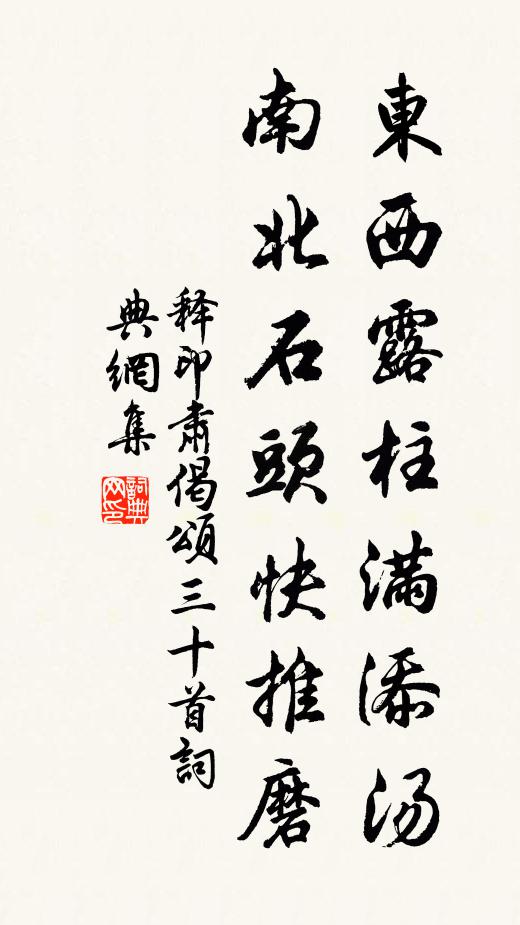 東西露柱满添汤
南北石頭快推磨
释印肃偈颂三十首詞
典網集
詞典网印